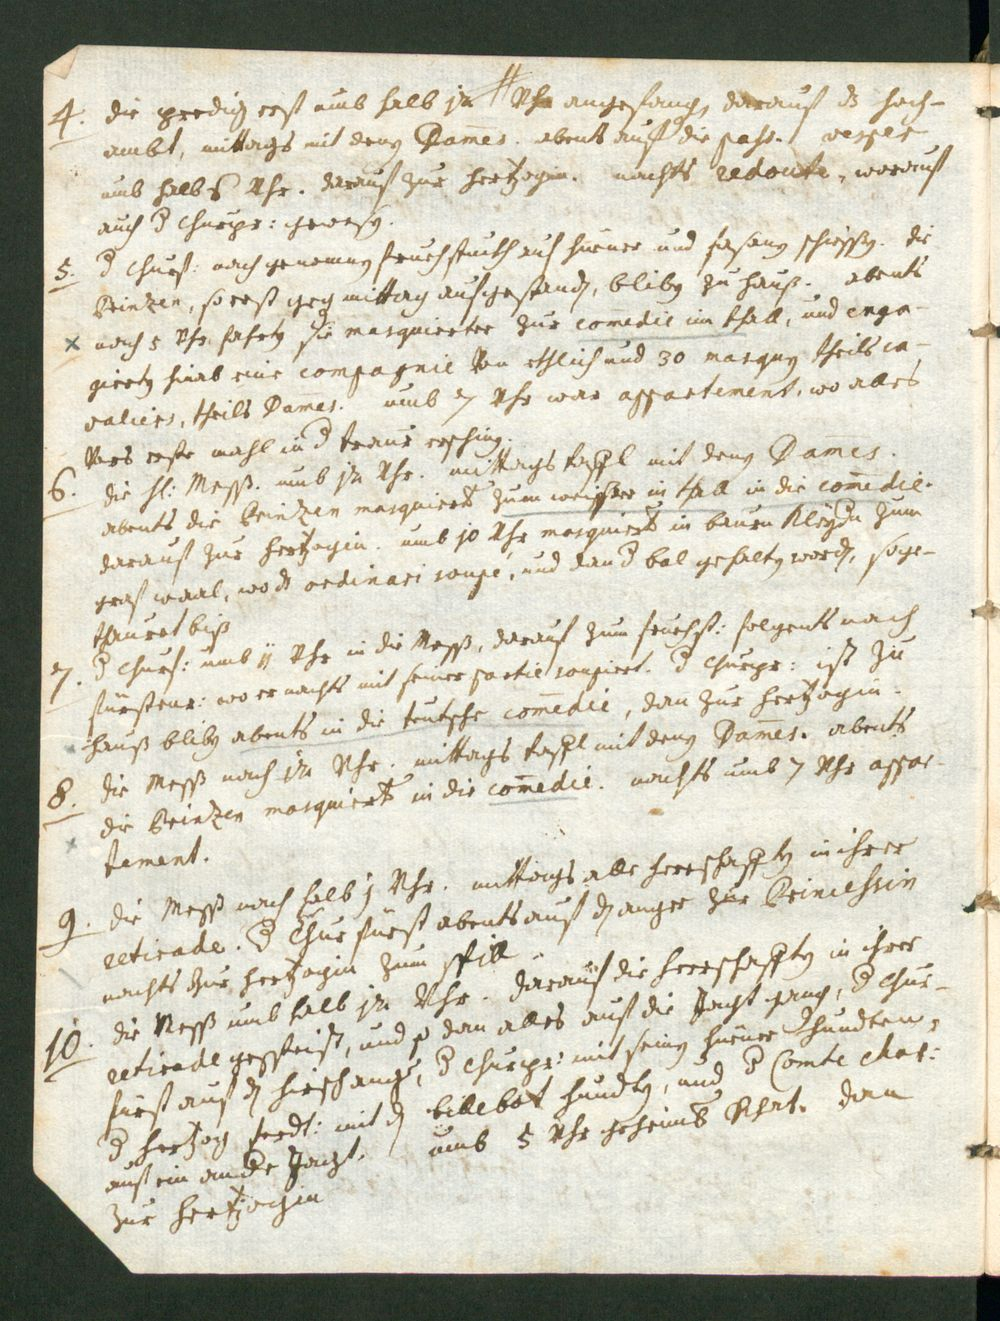 4. die predig erst umb halb 12 Uhr angefang, darauf ds hoch-
ambt, mittags mit deng Dames. abents auf die pass. vesper
umb halb 5 Uhr. darauf zur hertzogin. nachts redoute, worauf
auch d Churpr: gewesg.
5. d Churf: nachgenomng fruhstukh auf hüner und fasang schiessg. die
Printzen, so erst geg mittag aufgestandg, blibg zu hauß. abents
nach 5 Uhr fahrtg sie masquierter zur comedie im thall, und enga-
giertg hinab eine compagnie von ethlich und 30 masqug theils ca-
valiers, theils Dames. umb 7 Uhr war appartement, wo alles
vors erste mahl in d traur ersching.
6. die hl: Mess. umb 12 Uhr. mittags taffl mit deng Dames.
abents die Printzen masquiert zum in thall in die comedie.
darauf zur hertzogin. umb 10 Uhr masquiert in baurn Kleydn zum
wo ds ordinari soupé, und dan d bal gehaltg wordg, so ge-
tauret biß
7. d Churf: umb 11 Uhr in die Mess, darauf zum folgents nach
fürstenr: wo er nachts mit seiner partie soupiert. d Churpr: ist zu
hauß blibg abents in die teutsche comedie, dan zur hertzogin.
8. die Mess nach 12 Uhr. mittags taffl mit deng Dames. abents
die Printzen masquiert in die comedie. nachts umb 7 Uhr appar-
tament.
9. die Mess nach halb 1 Uhr. mittags alle herrschafftg in ihrer
retirade. d Churfürst abents auf dg anger zur Princessin
nachts zur hertzogin zum spill
10. die Mess umb halb 12 Uhr. darauf die herrschafftg in ihrer
retirade gespeist, und dan alles auf die Jacht gang, d Chur-
fürst auf dg hirschanger, d Churpr: mit seing hüner Hundten,
d hertzog ferdt: mit dg bilebat hundtg, und d Comte
auf ein andere Jagt. umb 5 Uhr geheimb Rhat. dan
zur hertzogin